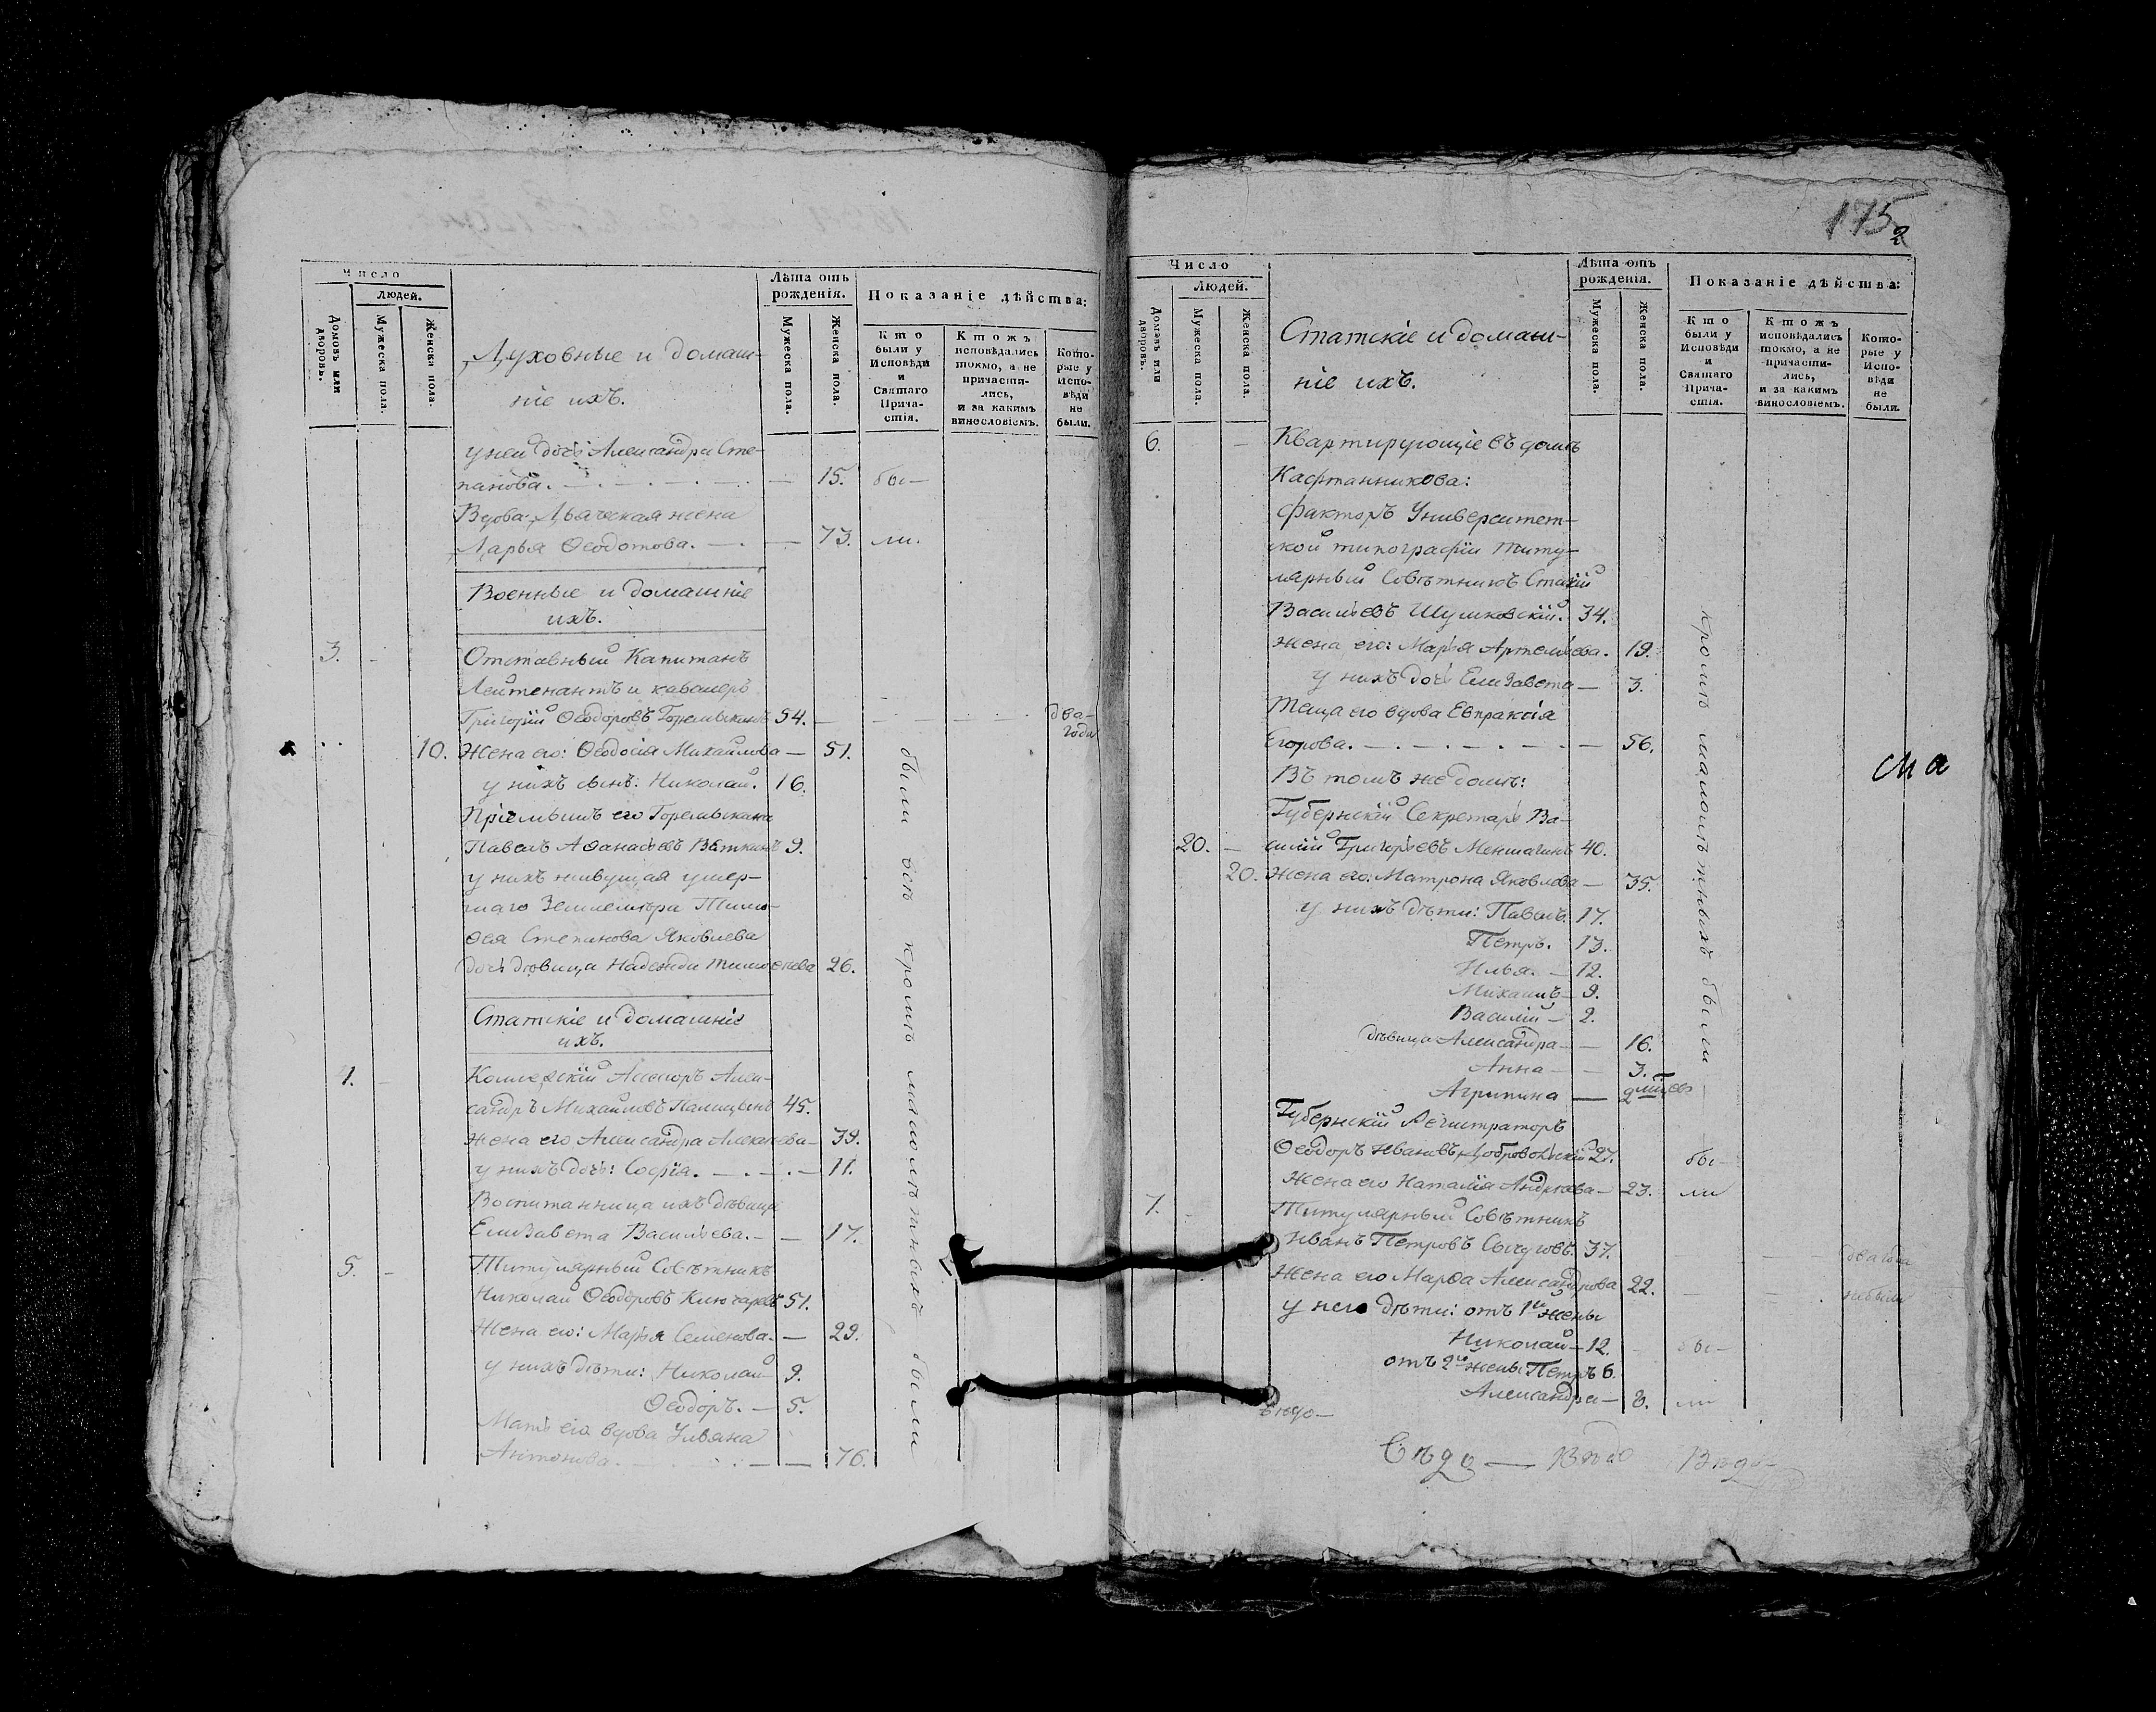 Число
Людей.
Домовъ или дворовъ.
Мужеска пола.
Женска пола.
Духовные и домаш-
ніе ихъ.
Лѣта отъ
рожденія.
Мужеска пола.
Женска пола.
Показаніе дѣйства:
Кто были у Исповѣди и Святаго Прича-стія.
Ктожъ исповѣдались токмо, а не причасти-лись, и за какимъ винословіемъ.
Кото-рые у Испо-вѣди не были.
у ней дочь Александра Сте-
панова. — 15. бы-
Вдова: Дьяческая жена
Дарья Ѳеодотова. — 73. ли.
Военные и домашніе
ихъ.
3. Отставный Капитанъ
Лейтенантъ и кавалеръ
Григорій Ѳеодоровъ 54. — два-
года
10. Жена его: Ѳеодосія Михайлова — 51.
у нихъ сынъ: Николай. 16.
Пріемышъ его
Павелъ Аѳанасьевъ 9.
у нихъ живущая умер-
шаго Землемѣра Тимо-
ѳея Степанова Яковлева
дочь дѣвица Надежда Тимоѳеева 26.
были всѣ кромѣ малолѣтныхъ были
Статскіе и домашніе
ихъ.
4. Коллежскій Ассесоръ Алек-
сандръ Михайловъ 45.
жена его Александра Алексѣева — 39.
у нихъ дочь: Софія. — 11.
Воспитанница ихъ дѣвица
Елизавета Васильева. — 17.
5. Титулярный Совѣтникъ
Николай Ѳеодоровъ Ключаревъ 51.
Жена его: Марья Семенова. — 29.
у нихъ дѣти: Николай 9.
Ѳеодоръ. — 5.
Мать его вдова Ульяна
Антонова. — 76.
175
2
Число
Людей.
Домовъ или дворовъ.
Мужеска пола.
Женска пола.
Статскіе и домаш-
ніе ихъ.
Лѣта отъ
рожденія.
Мужеска пола.
Женска пола.
Показаніе дѣйства:
Кто были у Исповѣди и Святаго Прича-стія.
Ктожъ исповѣдались токмо, а не причасти-лись, и за какимъ винословіемъ.
Кото-рые у Испо-вѣди не были.
6. Квартирующіе въ домѣ
Кафтанникова:
факторъ Университет-
ской типографіи Титу-
лярный Совѣтникъ
Васильевъ Шумковскій. 34.
жена его: Марья Артемьева. 19.
у нихъ дочь Елизавета — 3.
Теща его вдова Евпраксія
Егорова. — 56.
Въ томъ же домѣ:
Губернскій Секретарь Ва-
20. — силій Григорьевъ Меншагинъ 40.
20. Жена его: Матрона Яковлева — 35.
у нихъ дѣти: Павелъ. 17.
Петръ. 13.
Илья. — 12.
Михаилъ — 9.
Василій — 2.
дѣвица Александра — 16.
Анна — 3.
Агрипина —
Губернскій Регистраторъ
Ѳеодоръ Ивановъ Добровольскій 27. бы-
Жена его Наталія Андреева — 23. ли
7. Титулярный Совѣтникъ
Иванъ Петровъ Сычуговъ. 37. — два года
Жена его Марѳа Александрова 22. — небыли
у него дѣти: отъ 1й жены
Николай — 12. бы-
отъ 2й жены Петръ 6.
Александра — 8. ли
кромѣ малолѣтныхъ были
ма